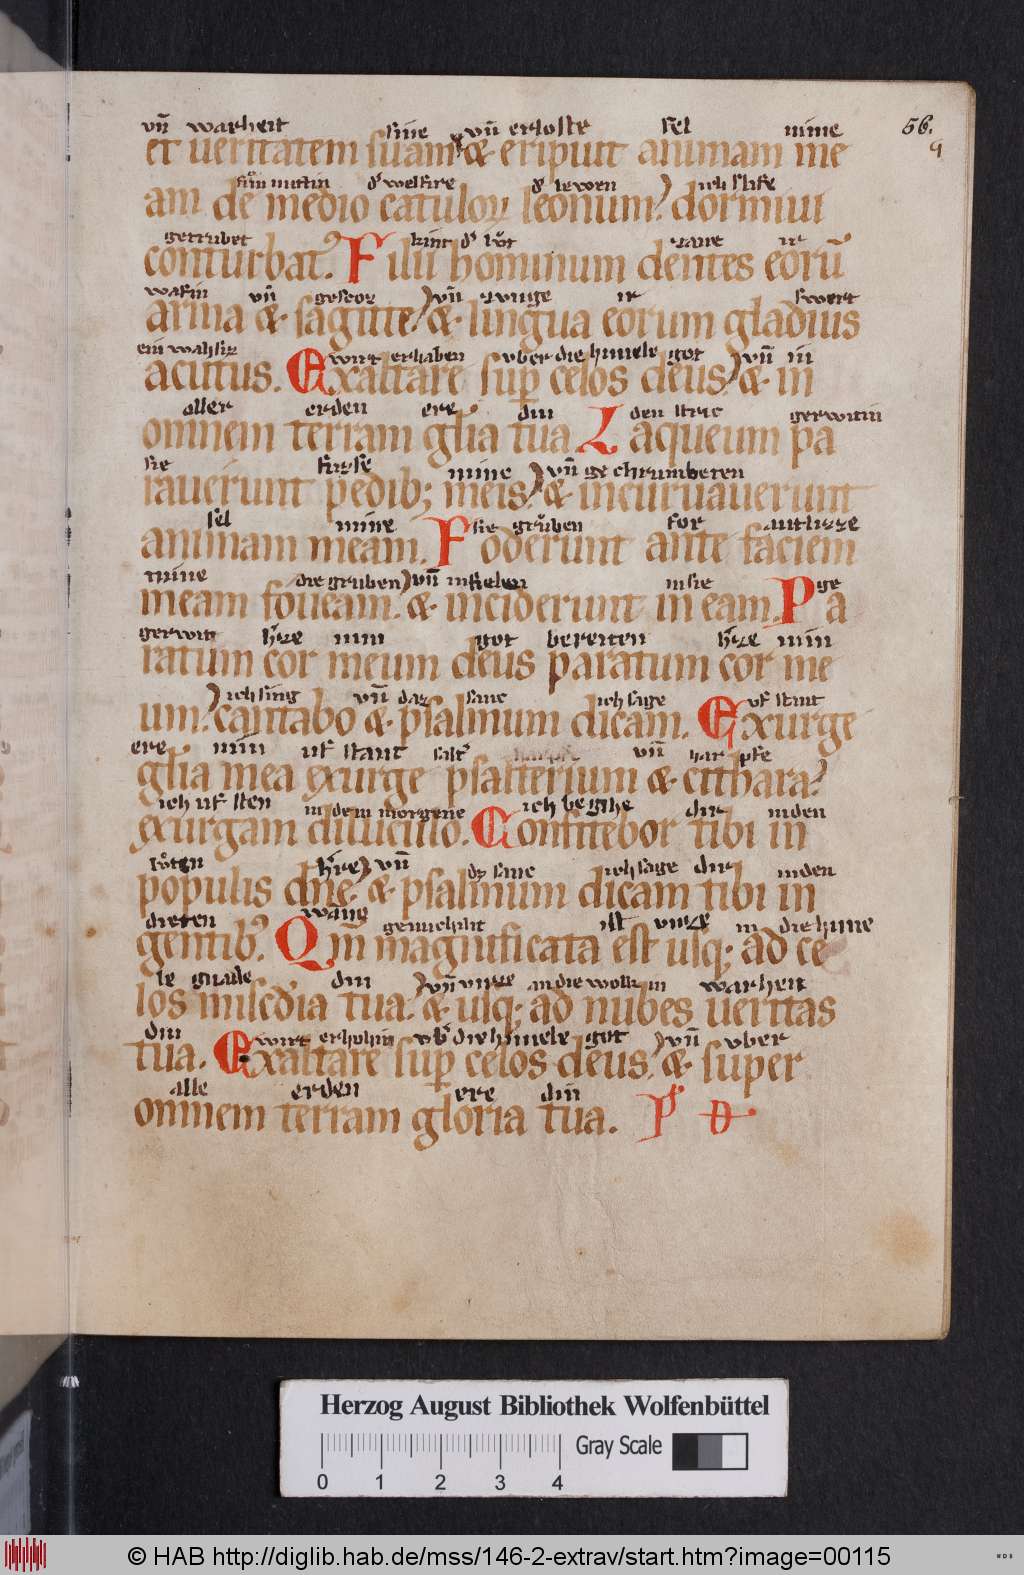 vñ warheit sine vñ erloste sel mine 56.
et ueritatem suam & eripuit animam me
fuͦn mittin d̾ welfire d̾ lewen ich slife
am de medio catuloꝝ leonum? dormiui
getrubet kint d̾ luͦt zane ir
conturbat᾽. Filii hominum dentes eorū
wafin vñ gescoz vñ zunge ir swert
arma & sagitte? & lingua eorum gladius
ein wahsiz wirt erhaben vber die himele got vñ in
acutus. Exaltare sup celos deus? & in
aller erden ere din den stric gerwitin
omnem terram glia tua. Laqueum pa
sie fuzse mine vñ gechrumbeten
rauerunt pedib; meis? & incuruauerunt
sel mine sie gruͦben for antlizze
animam meam. Foderunt ante faciem
mine die gruben vñ infielen in sie ge
meam foueam. & inciderunt in eam. Pa
gerwit h̾ze min got bereiten h̾ze min
ratum cor meum deus paratum cor me
ich sing vñ daz sanc ich sage uf stant
um? cantabo & psalmum dicam. Exurge
ere min uf stant salt̾ vñ harpfe
glia mea exurge psalterium & cithara?
ich uf sten in dem morgene ich begihe dir in den
exurgam diluculo. Confitebor tibi in
luͦten h̾re vñ dz sanc ich sage dir in den
populis dn̄e? & psalmum dicam tibi in
dieten wang gemichilit ist unze in die hime
gentib᾽. Qm̄ magnificata est usq; ad ce
le gnade din vñ unze an die wolkin warheit
los misc̄dia tua? & usq; ad nubes ueritas
din wirt erhohin vb̾ die himele got vñ vber
tua. Exaltare sup celos deus? & super
alle erden ere din
omnem terram gloria tua. Ps D
Herzog August Bibliothek Wolfenbüttel
Gray Scale
0 1 2 3 4
© HAB http://diglib.hab.de/mss/146-2-extrav/start.htm?image=00115